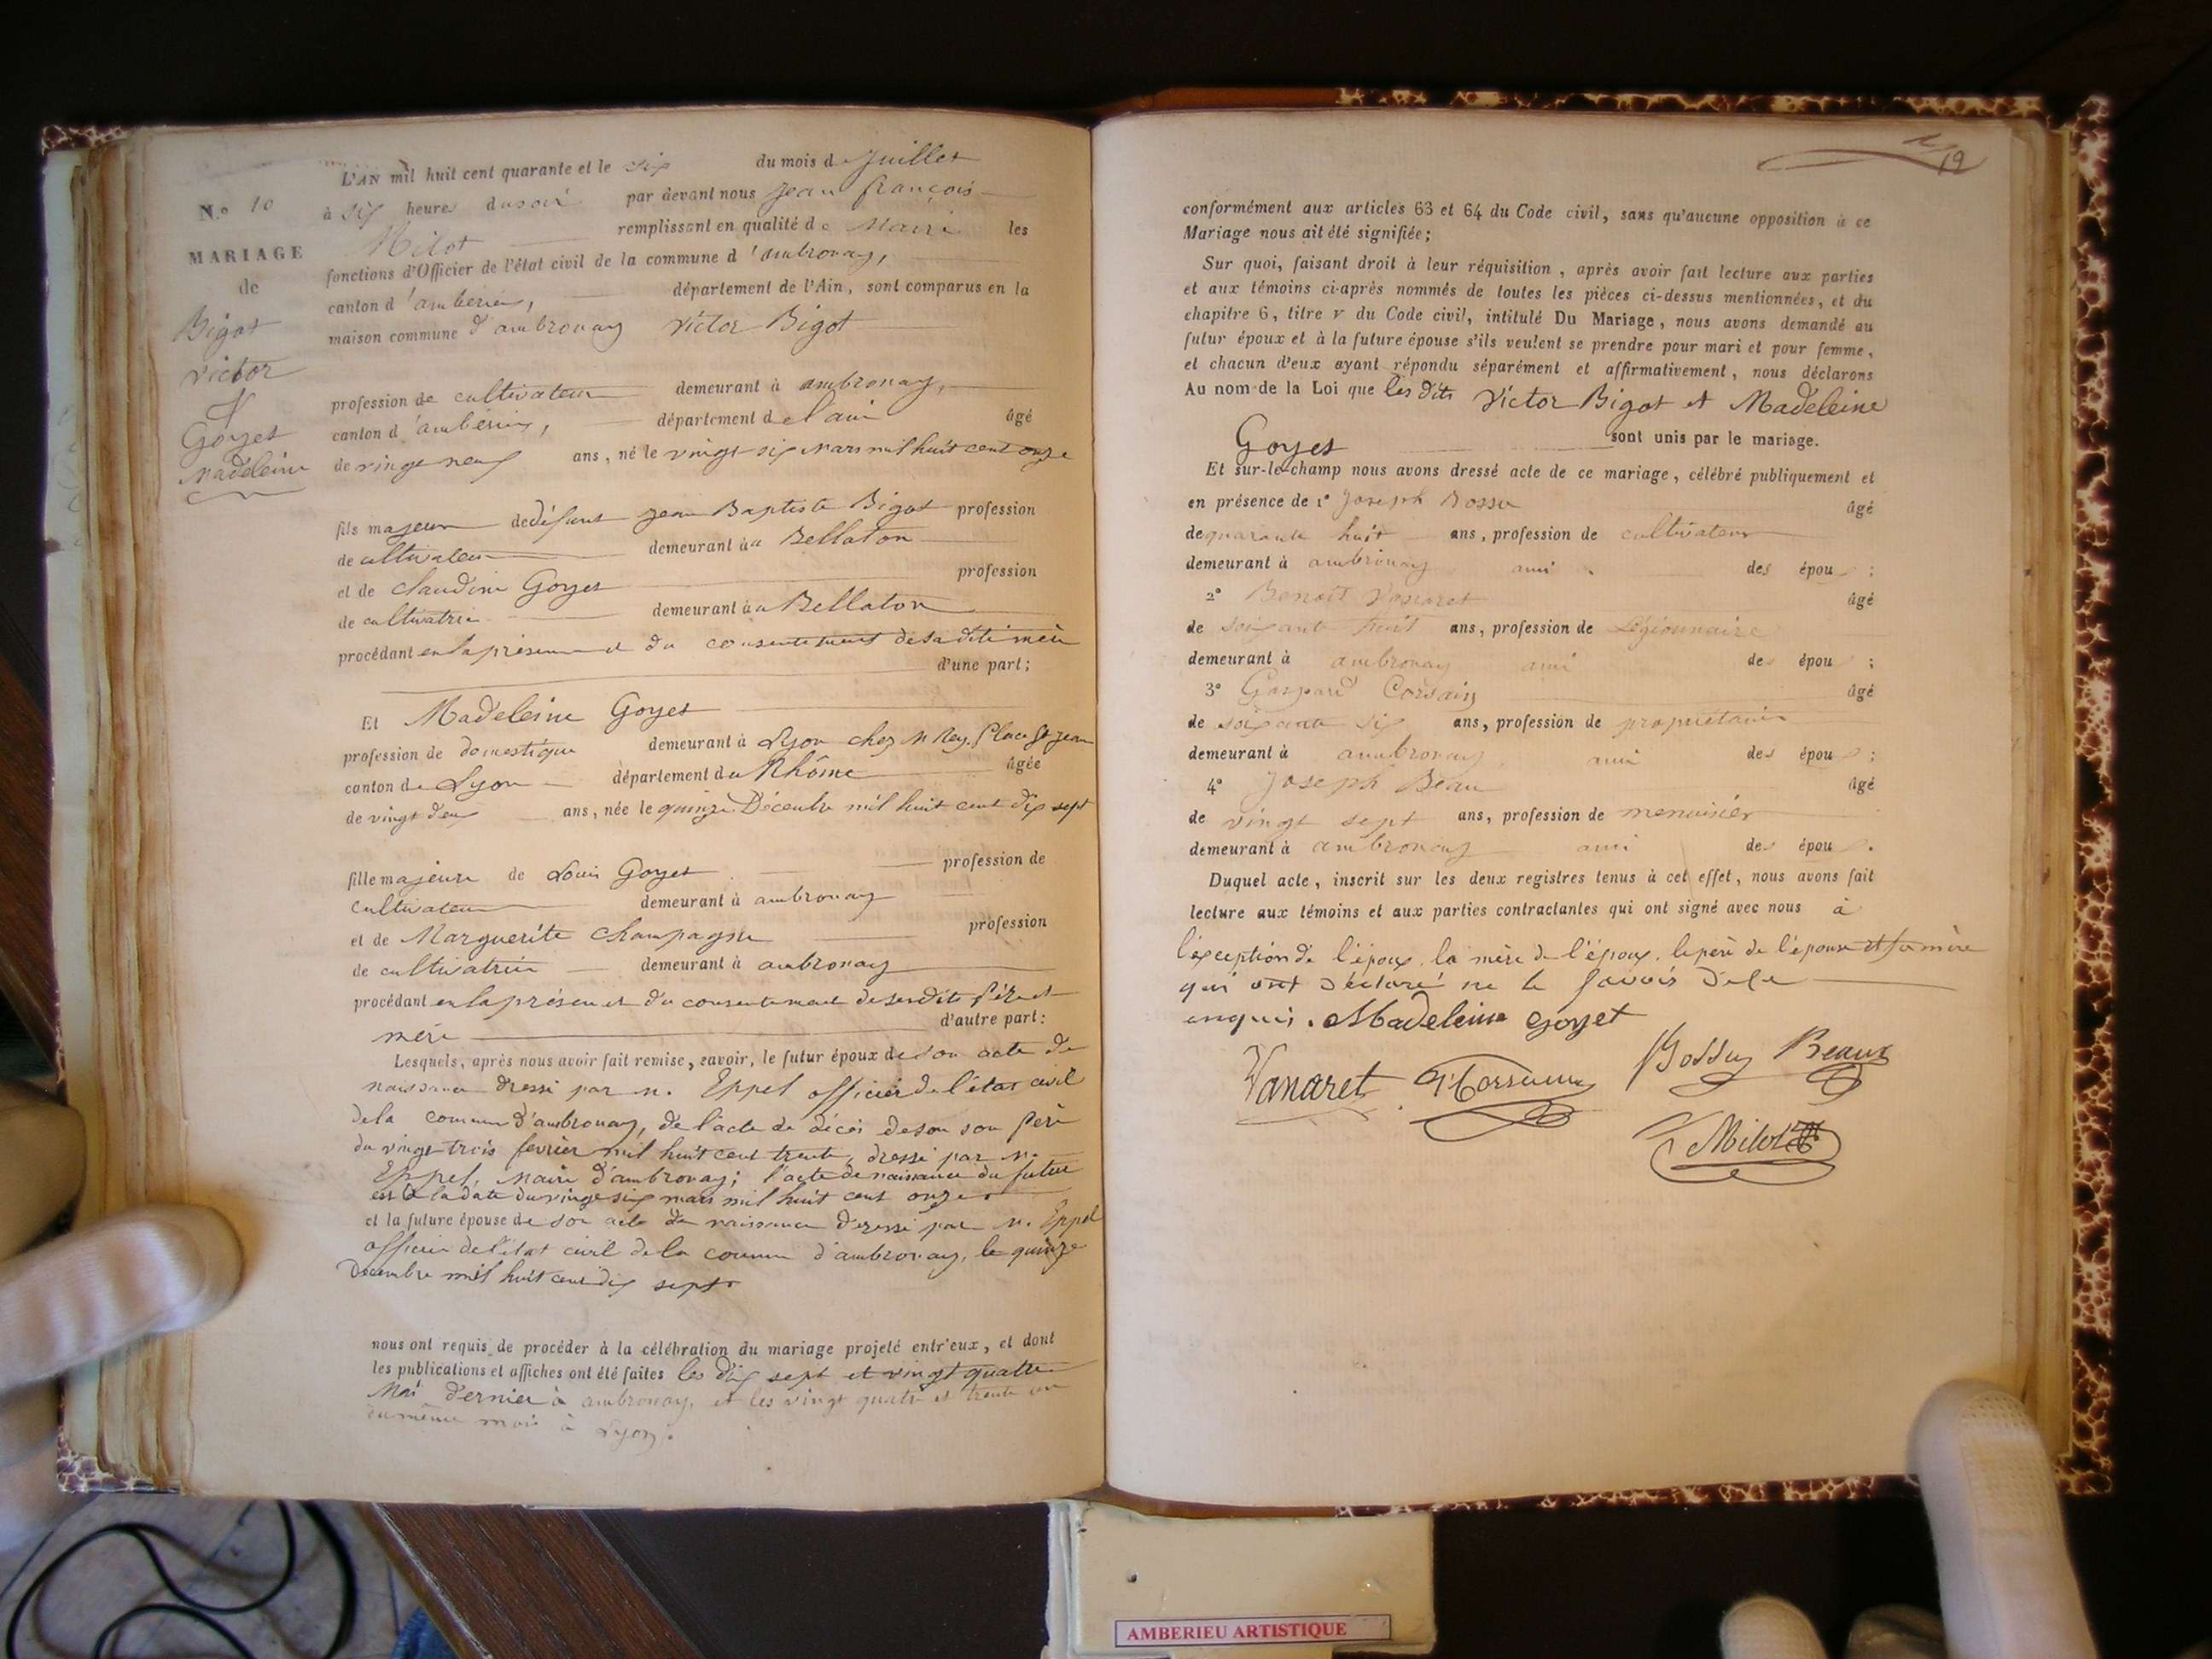 L'AN mil huit cent quarante et le six du mois d Juillet
N.o 10
à six heures du soir par devant nous jean françois
Milot remplissant en qualité de Maire les
MARIAGE
fonctions d'Officier de l'état civil de la commune d'ambronay,
de
canton d'ambérieu, département de l'Ain, sont comparus en la
Bigot
maison commune d'ambronay Victor Bigot
Victor
&
Goyet
Madeleine
profession de cultivateur demeurant à ambronay,
canton d'ambérieu, département de l'ain âgé
de vingt neuf ans, né le vingt six Mars mil huit cent onze
fils majeur de défunt jean Baptiste Bigot profession
de cultivateur demeurant à a Bellaton
et de claudine Goyet profession
de cultivatrice demeurant à a Bellaton
procédant en la présence et du consentement de sa dite mère
d'une part;
Et Madeleine Goyet
profession de domestique demeurant à Lyon chez Mr Rey. Place St jean
canton de Lyon département du Rhône âgée
de vingt deux ans, née le quinze Décembre mil huit cent dix sept
fille majeure de Louis Goyet profession de
cultivateur demeurant à ambronay
et de Marguerite champagne profession
de cultivatrice demeurant à ambronay
procédant en la présence et du consentement de ses dits père et
mère d'autre part:
Lesquels, après nous avoir fait remise, savoir, le futur époux de son acte de
naissance dressé par m. Eppel officier de l'état civil
de la commune d'ambronay, de l'acte de décès de son son père
du vingt trois février mil huit cent trente, dressé par m.
Eppel, Maire d'ambronay; l'acte de naissance du futur
est à la date du vingt six mars mil huit cent onze.
et la future épouse de son acte de naissance dressé par m. Eppel
officier de l'état civil de la commune d'ambronay, le quinze
Décembre mil huit cent dix sept.
nous ont requis de procéder à la célébration du mariage projeté entr'eux, et dont
les publications et affiches ont été faites les dix sept et vingt quatre
Mai dernier à ambronay, et les vingt quatre et trente un
du même mois à Lyon.
19
conformément aux articles 63 et 64 du Code civil, sans qu'aucune opposition à ce
Mariage nous ait été signifiée;
Sur quoi, faisant droit à leur réquisition, après avoir fait lecture aux parties
et aux témoins ci-après nommés de toutes les pièces ci-dessus mentionnées, et du
chapitre 6, titre v du Code civil, intitulé Du Mariage, nous avons demandé au
futur époux et à la future épouse s'ils veulent se prendre pour mari et pour femme,
et chacun d'eux ayant répondu séparément et affirmativement, nous déclarons
Au nom de la Loi que les dits Victor Bigot et Madeleine
Goyet sont unis par le mariage.
Et sur-le-champ nous avons dressé acte de ce mariage, célébré publiquement et
en présence de 1° Joseph Bossu âgé
de quarante huit ans, profession de cultivateur
demeurant à ambronay ami des époux;
2° Benoît Vanaret âgé
de soixante huit ans, profession de Légionnaire
demeurant à ambronay ami des époux;
3° Gaspard Corsain âgé
de soixante six ans, profession de propriétaire
demeurant à ambronay ami des époux;
4° Joseph Beau âgé
de vingt sept ans, profession de menuisier
demeurant à ambronay ami des époux.
Duquel acte, inscrit sur les deux registres tenus à cet effet, nous avons fait
lecture aux témoins et aux parties contractantes qui ont signé avec nous à
l'exception de l'époux. la mère de l'époux. le père de l'épouse et sa mère
qui ont déclaré ne le savoir de ce
enquis. Madeleine goyet
Vanaret Bossu Beaux
Milot
AMBERIEU ARTISTIQUE